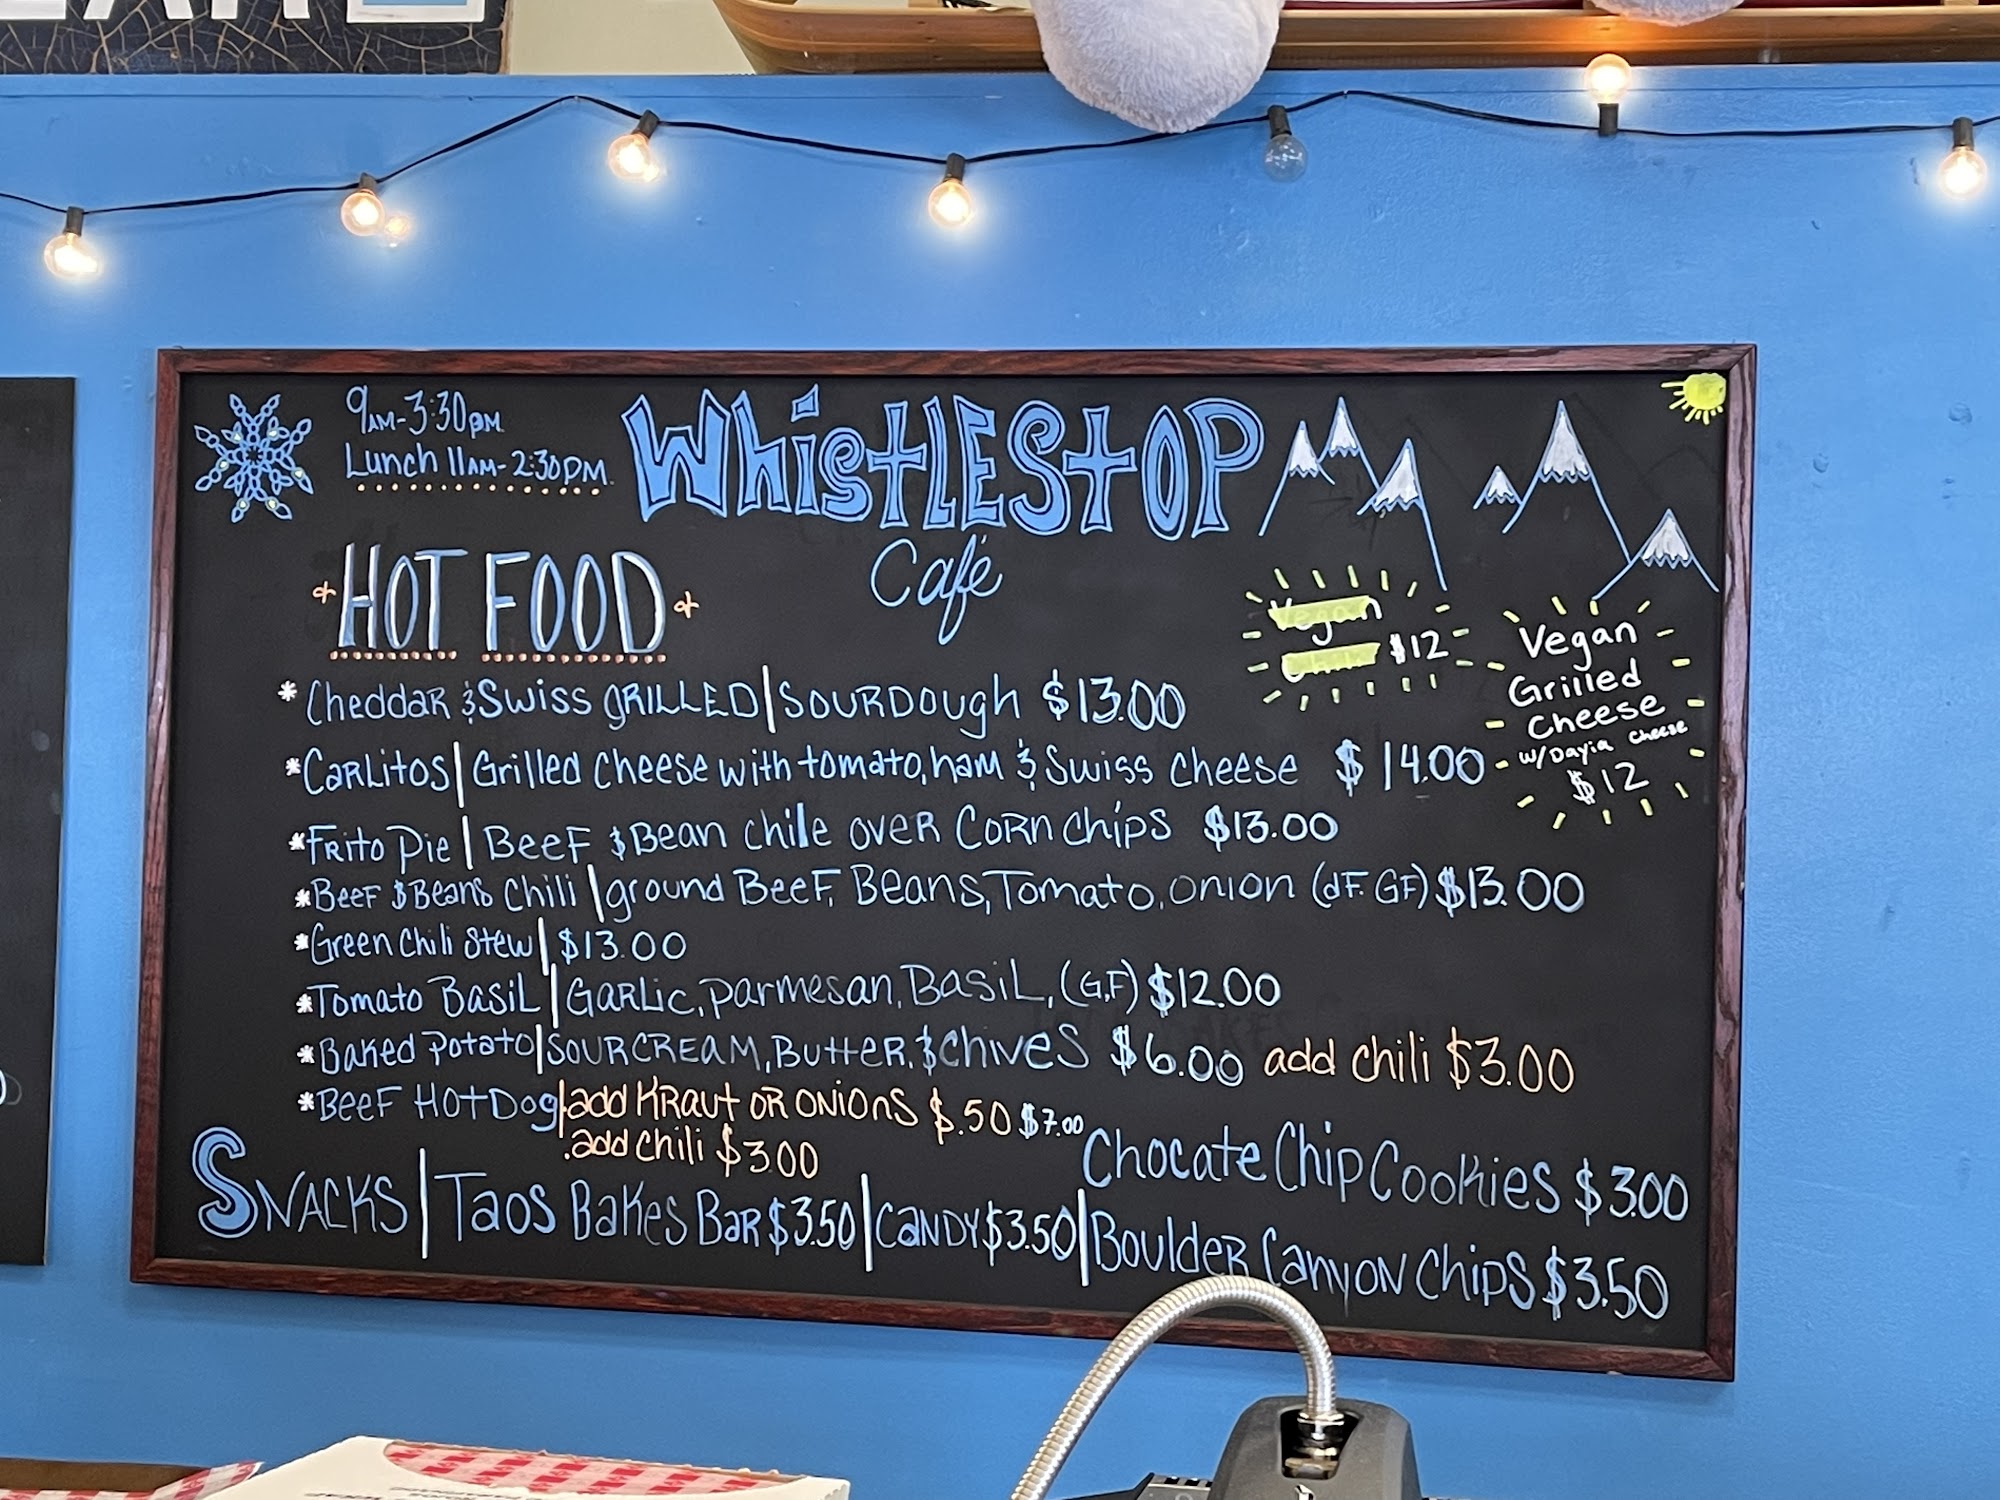 9AM-3:30PM
Lunch 11AM-2:30PM
WhistLEStOP
Café
HOT FOOD
Vegan
$12
Vegan
Grilled
Cheese
w/Dayia Cheese
$12
*Cheddar & Swiss GRILLED | SOURDough $13.00
*CarLitos | Grilled Cheese with tomato, ham & Swiss Cheese $14.00
*Frito Pie | Beef & Bean Chile over Corn Chips $13.00
*Beef & Beans Chili | ground Beef, Beans, Tomato, Onion (dF. GF) $13.00
*Green Chili Stew | $13.00
*Tomato Basil | Garlic, parmesan, Basil, (G,F) $12.00
*Baked Potato | SOUR CREAM, Butter, & Chives $6.00 add chili $3.00
*Beef Hot Dog | .add Kraut or onions $.50 $7.00
.add chili $3.00
Chocate Chip Cookies $3.00
SNACKS | Taos Bakes Bar $3.50 | CANDY $3.50 | Boulder Canyon Chips $3.50